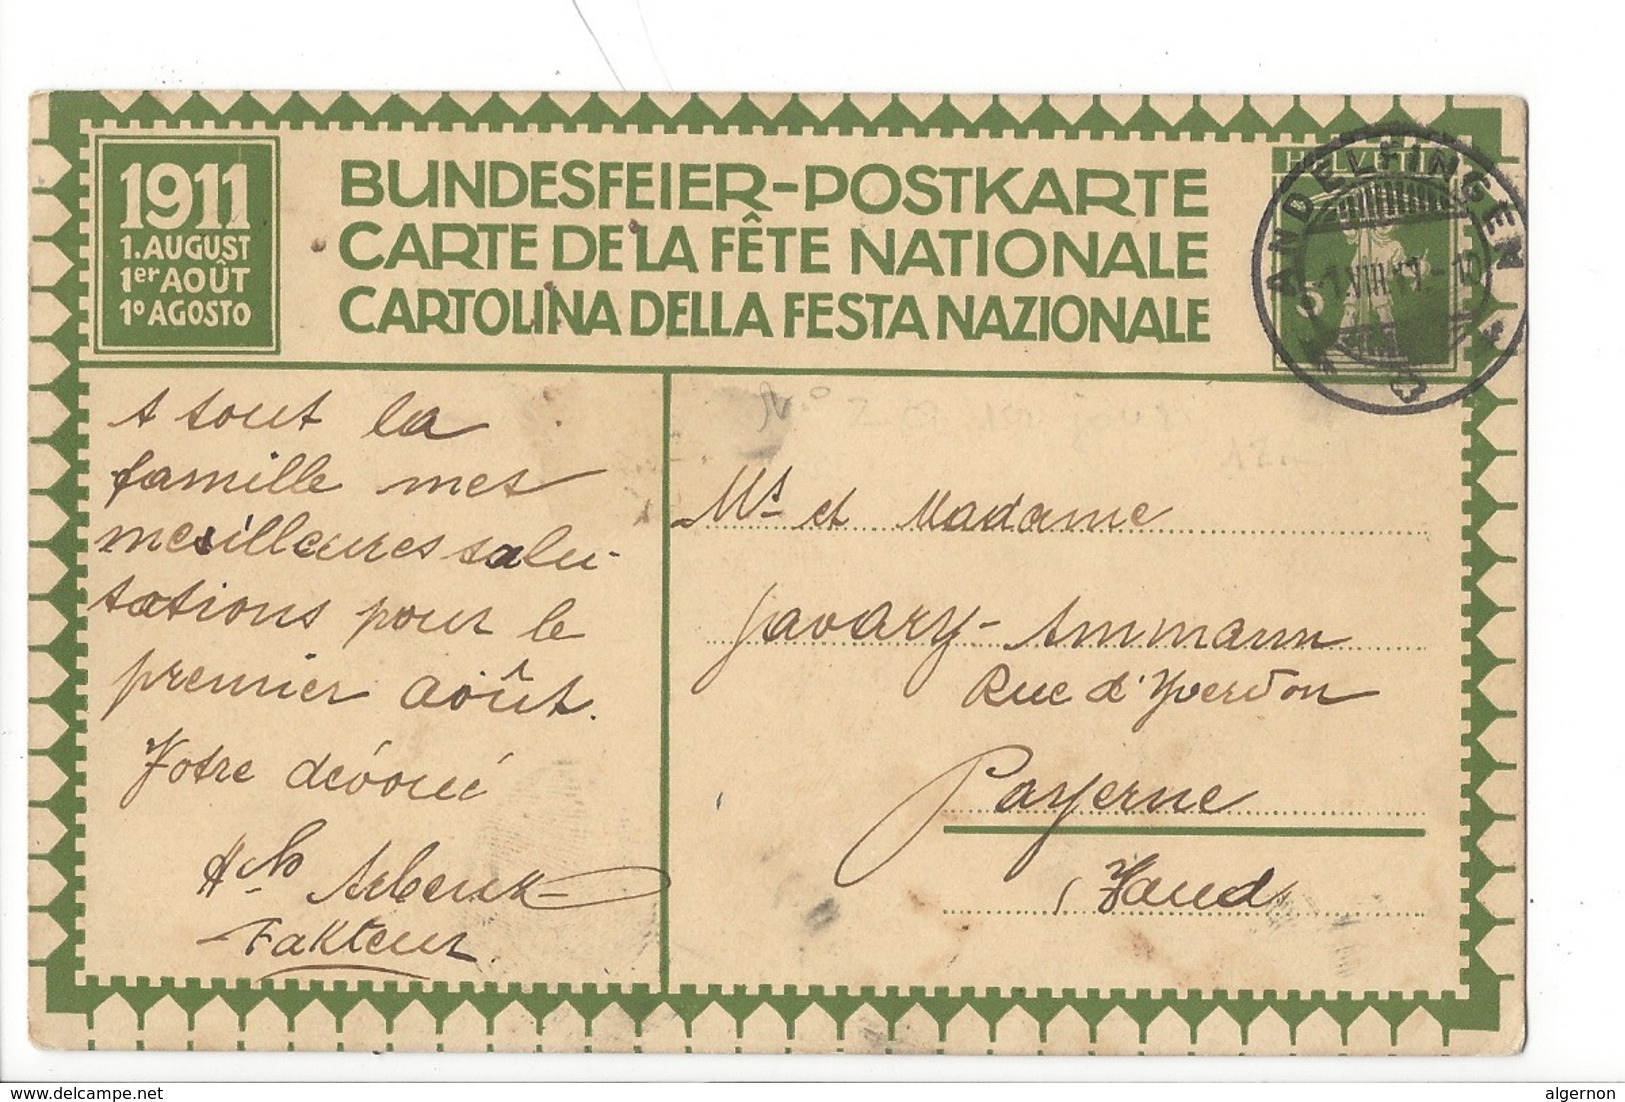 1911
1. AUGUST
1er AOÛT
1º AGOSTO
BUNDESFEIER-POSTKARTE
CARTE DE LA FÊTE NATIONALE
CARTOLINA DELLA FESTA NAZIONALE
HELVETIA
5
ANDELFINGEN
1.VIII.11.-10
A tout la
famille mes
mesilleures salu-
tations pour le
premier août.
Votre dévoué
Fakteur
Mr et Madame
Javary-Ammann
Rue d'Yverdon
Payerne
(Vaud)
www.delcampe.net
algernon